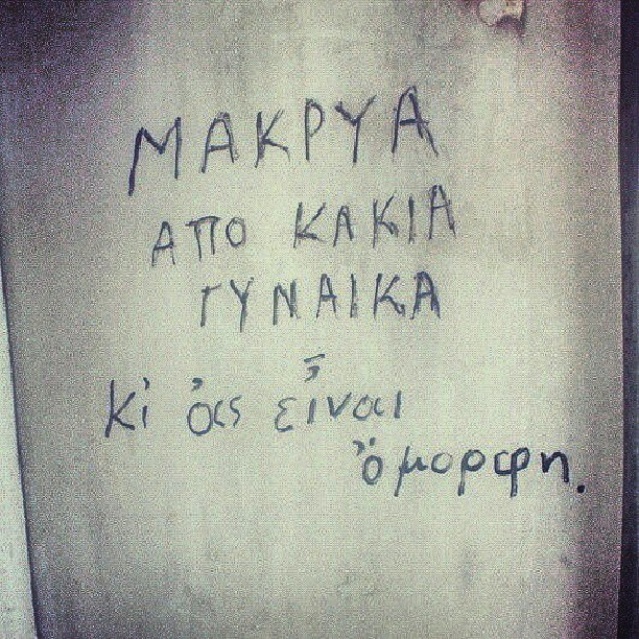 ΜΑΚΡΥΑ
ΑΠΟ ΚΑΚΙΑ
ΓΥΝΑΙΚΑ
κι ἂς εἶναι
ὄμορφη.